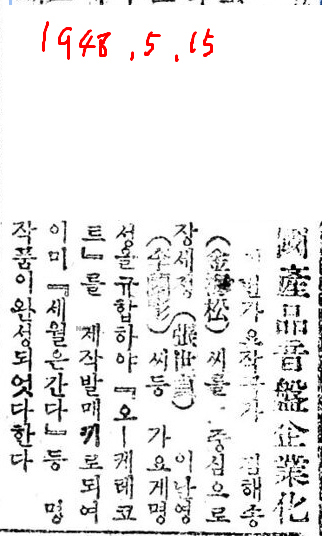 1948.5.15
國產品音盤企業化
가요작곡가 김해송
(金海松)씨를 중심으로
장세정(張世貞) 이난영
(李蘭影)씨등 가요게명
성을규합하야 『오—케레코
트』를 제작발매키로되여
이미 『세월은간다』등 명
작품이완성되엿다한다